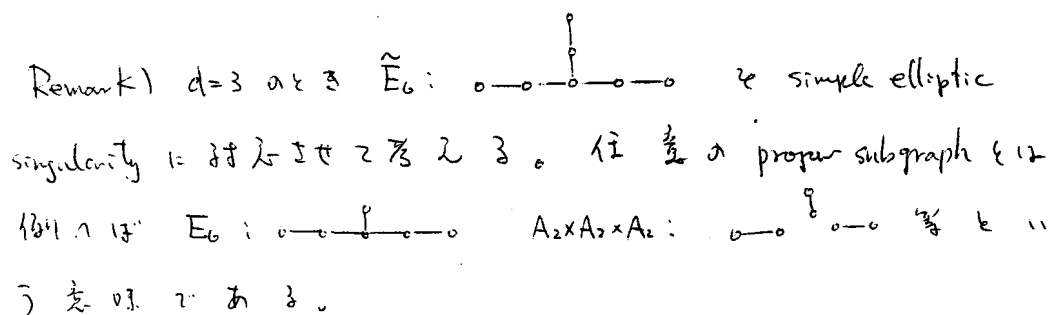 Remark) d=3 のとき Ẽ₆: o—o—o—o—o を simple elliptic
singularity に対応させて考える。 任意の proper subgraph とは
例えば E₆: o—o—o—o—o A₂×A₂×A₂: o—o o—o 等とい
う意味である。